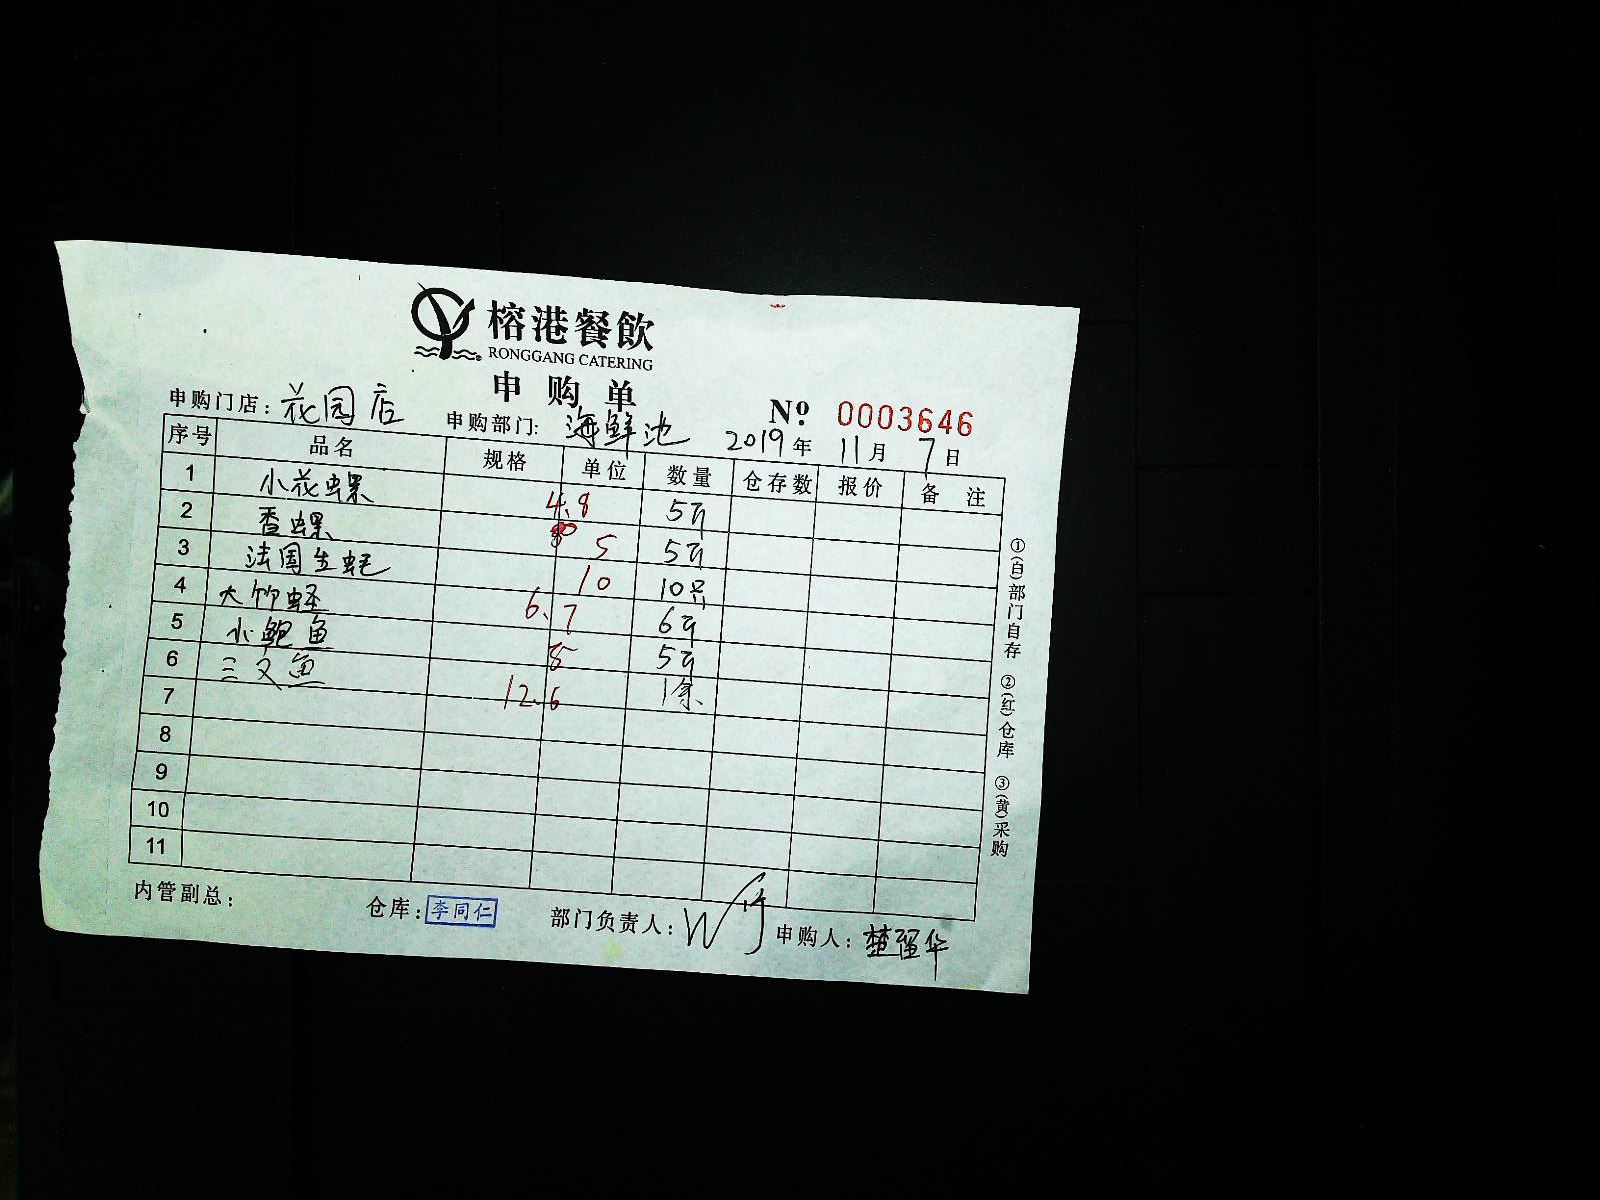 榕港餐飲
RONGGANG CATERING
申购单
申购门店: 花园店 申购部门: 海鲜池 Nº 0003646
2019年 11月 7日
序号 品名 规格 单位 数量 仓存数 报价 备注
1 小花螺 4.8 5斤
2 香螺 5 5斤
3 法国生蚝 10 10只
4 大竹蛏 6.7 6斤
5 小鲍鱼 8 5斤
6 三文鱼 12.6 1条
7
8
9
10
11
①(白)部门自存 ②(红)仓库 ③(黄)采购
内管副总: 仓库: 李同仁 部门负责人: 申购人: 楚留华